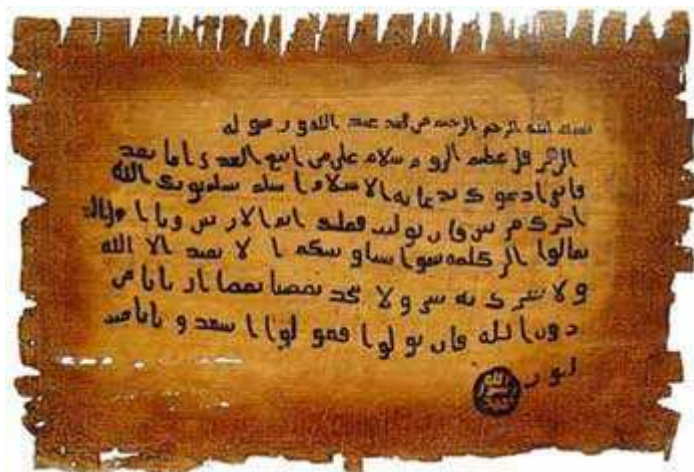 بسم الله الرحمن الرحيم من محمد عبد الله ورسوله
الى هرقل عظيم الروم سلام على من اتبع الهدى اما بعد
فانى ادعوك بدعاية الاسلام اسلم تسلم يوتك الله
اجرك مرتين فان توليت فعليك اثم الاريسين ويا اهل الكتاب
تعالوا الى كلمة سوا بيننا وبينكم ا لا نعبد الا الله
ولا نشرك به شيا ولا يتخذ بعضنا بعضا اربابا من
دون الله فان تولوا فقولوا اشهدوا بانا مسلمون
الله
رسول
محمد